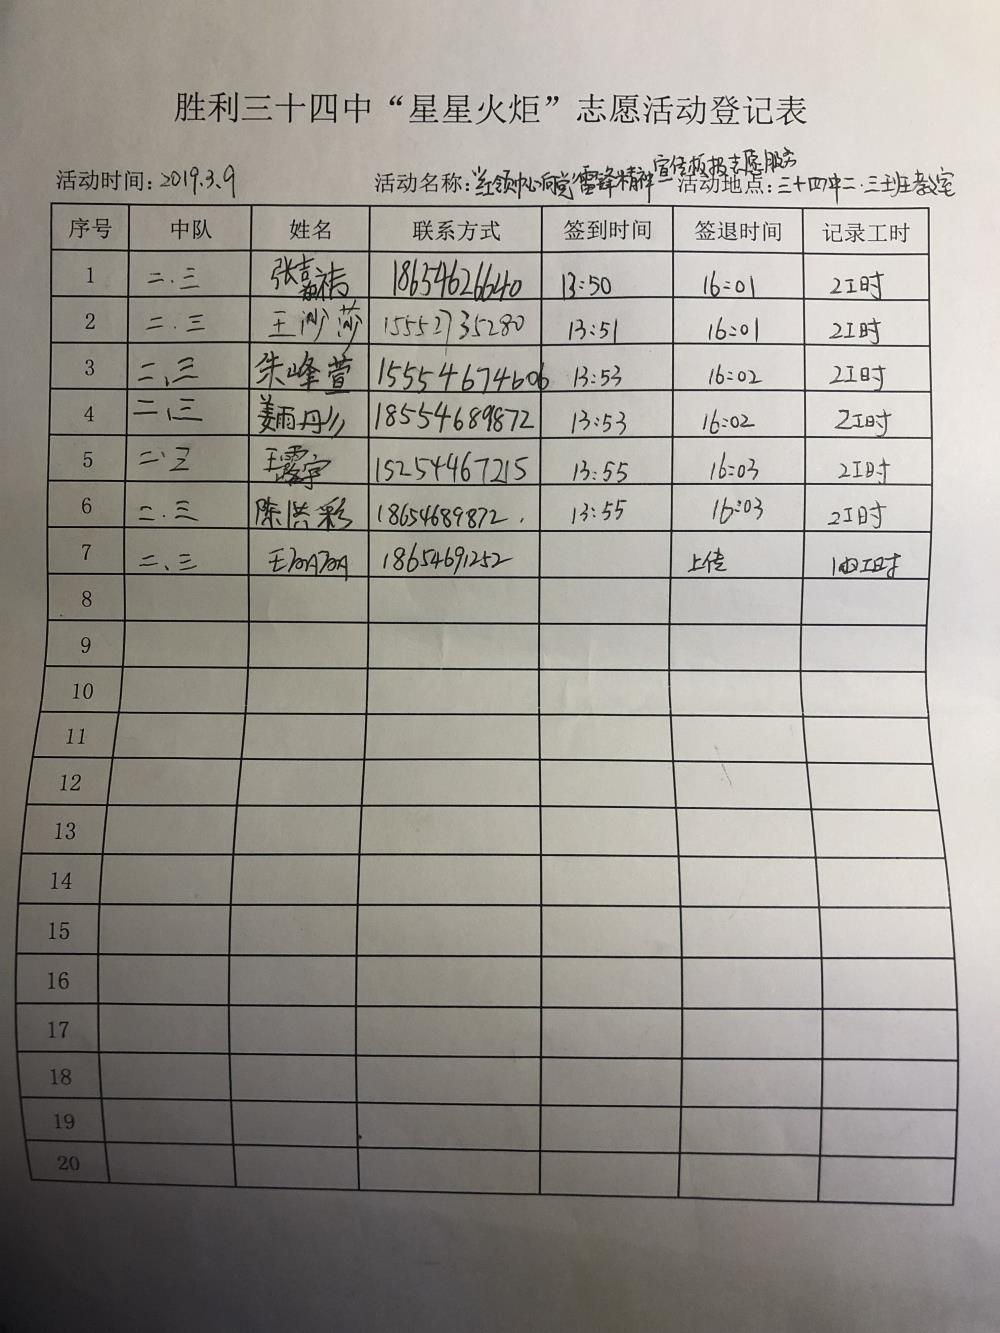 胜利三十四中“星星火炬”志愿活动登记表
活动时间:2019.3.9 活动名称:红领巾心向党雷锋精神宣传板报志愿服务 活动地点:三十四中二.三班教室
序号 中队 姓名 联系方式 签到时间 签退时间 记录工时
1 二.三 张嘉祐 18654626640 13:50 16:01 2工时
2 二.三 王沙莎 15552735280 13:51 16:01 2工时
3 二、三 朱峰萱 15554674606 13:53 16:02 2工时
4 二、三 姜雨丹 18554689872 13:53 16:02 2工时
5 二.三 王露宇 15254467215 13:55 16:03 2工时
6 二.三 陈洪彩 18654689872. 13:55 16:03 2工时
7 二、三 王 18654691252 上传 工时
8
9
10
11
12
13
14
15
16
17
18
19
20